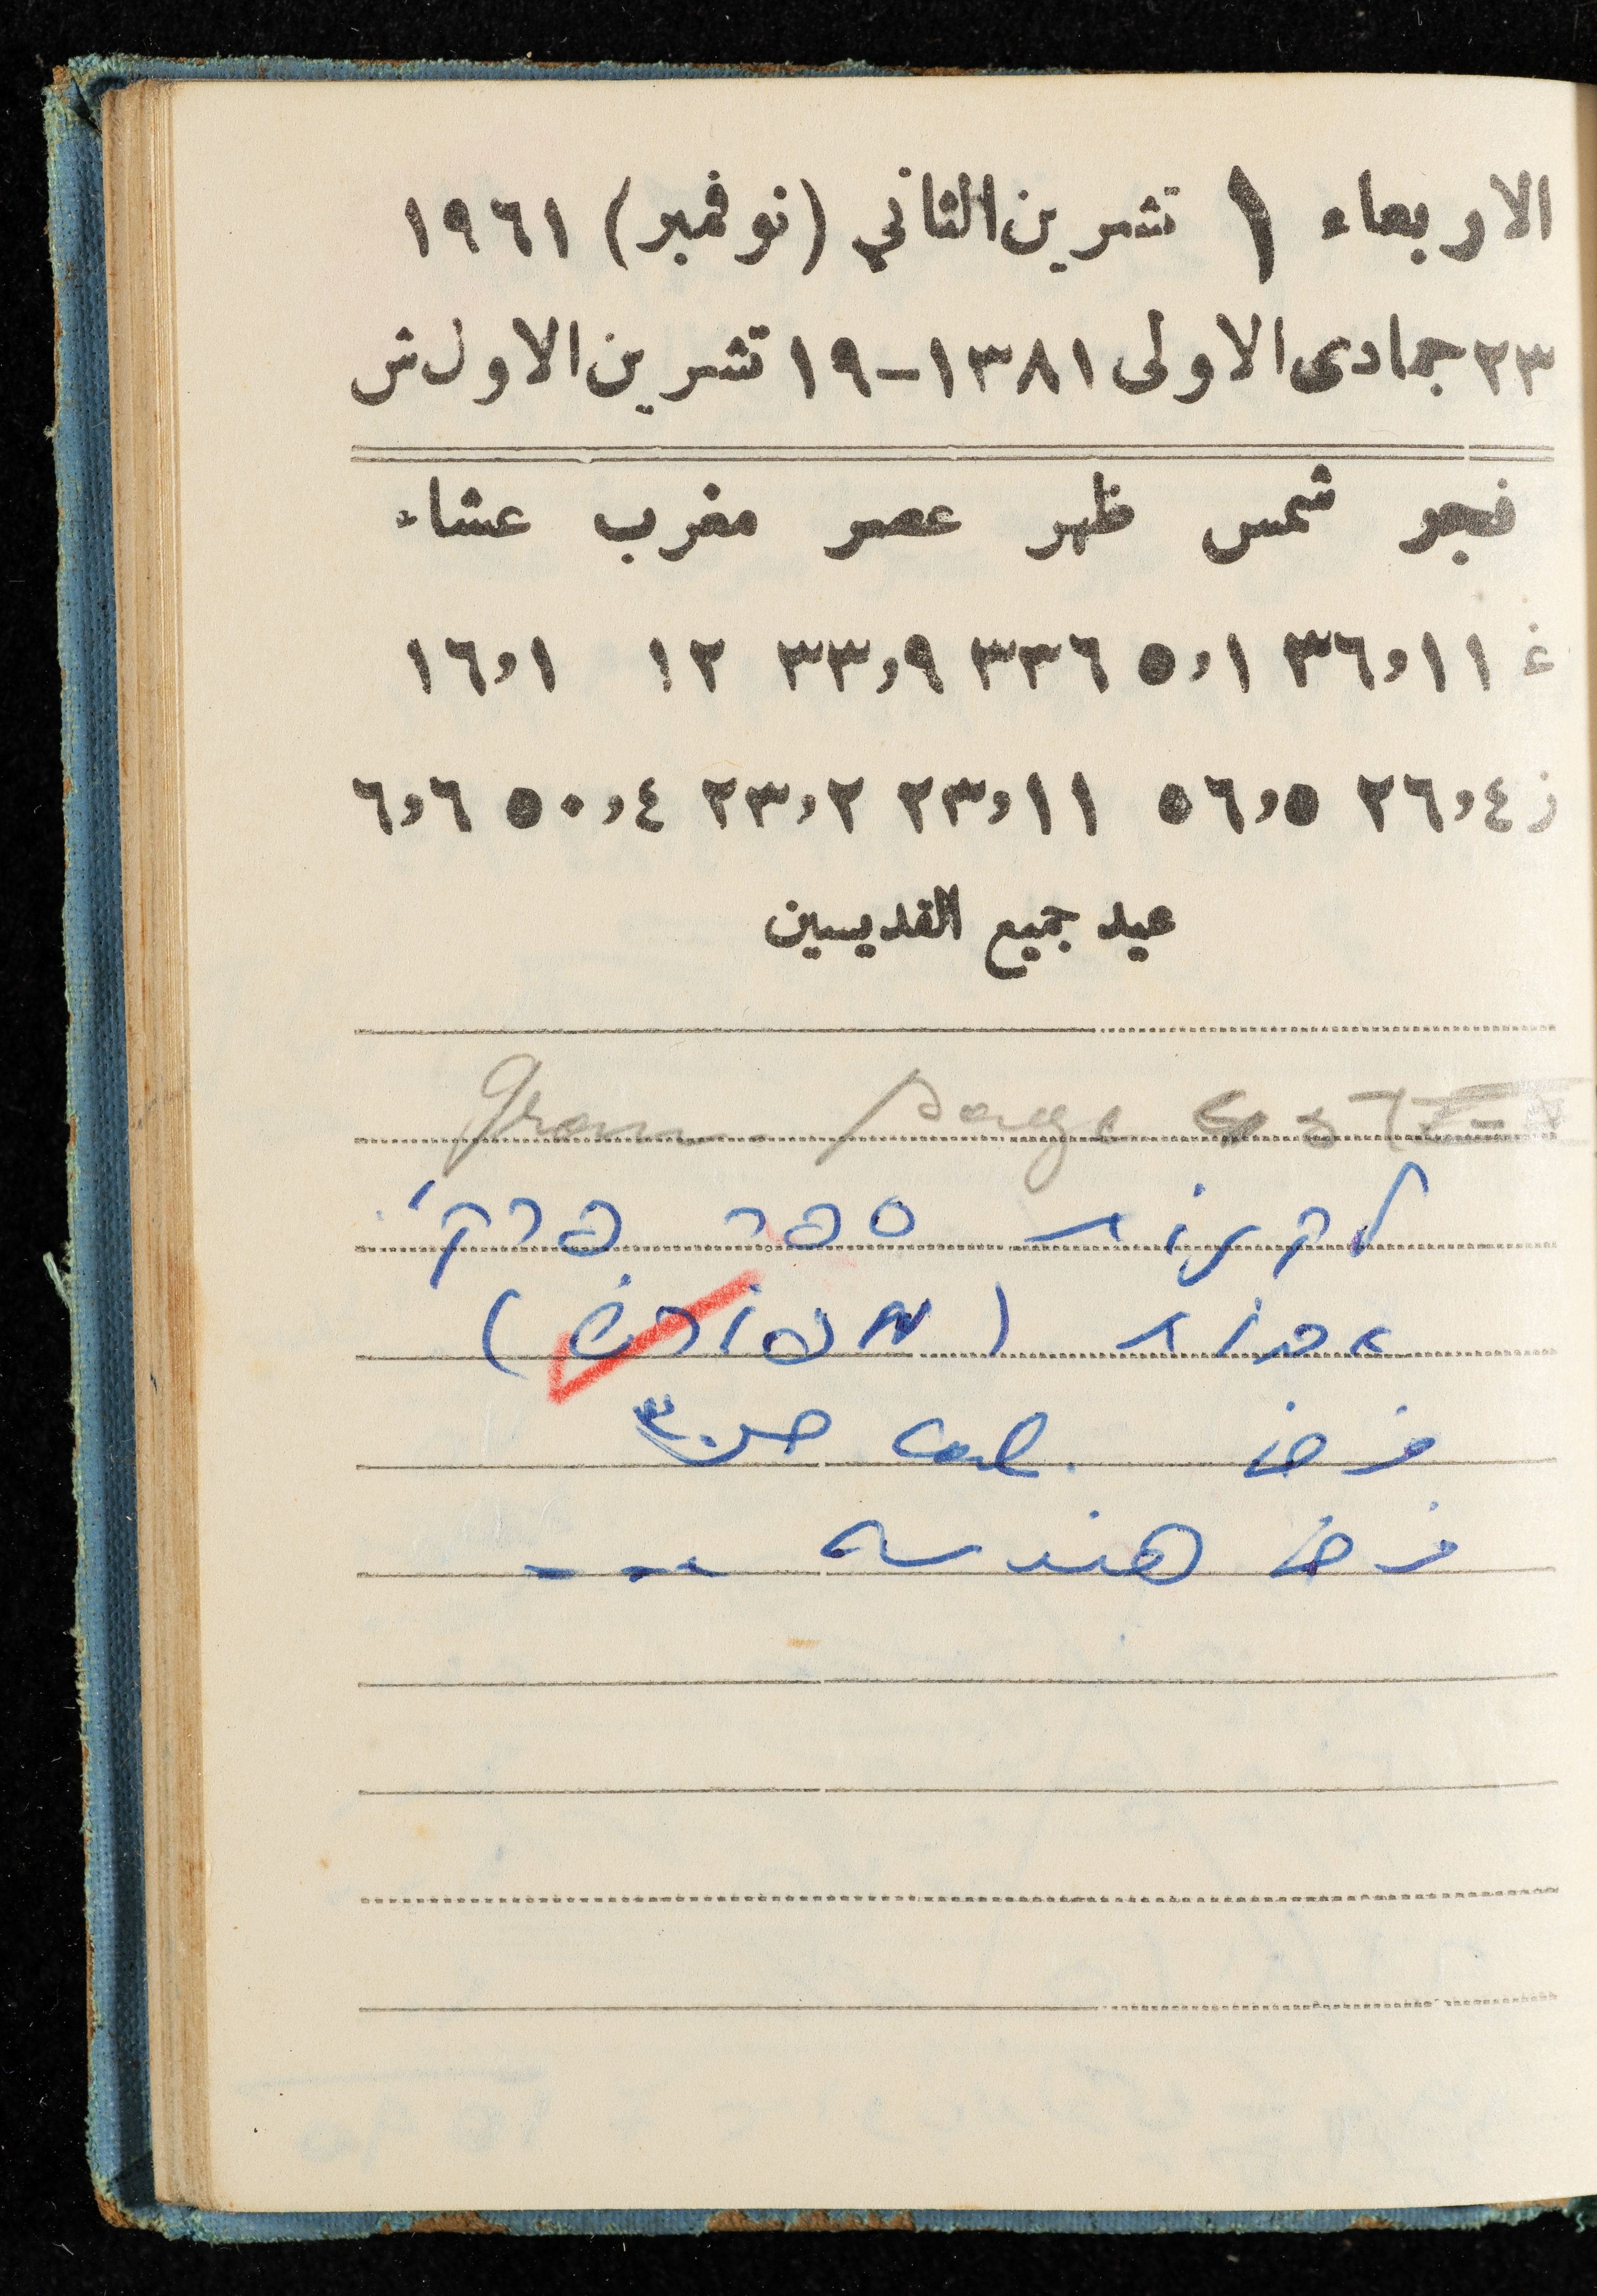 الاربعاء ١ تشرين الثاني (نوفمبر) ١٩٦١
٢٣ جمادى الاولى ١٣٨١-١٩ تشرين الاول ش
فجر شمس ظهر عصر مغرب عشاء
غ ٣٦,١١ ٥,١ ٣٣٦ ٣٣,٩ ١٢ ١٦,١
ز ٢٦,٤ ٥٦,٥ ٢٣,١١ ٢٣,٢ ٥٠,٤ ٦,٦
عيد جميع القديسين
Gram page
לקנות ספר פרקי
אבות (מפורש)
فرض ص ٣٠
فرض هندسه